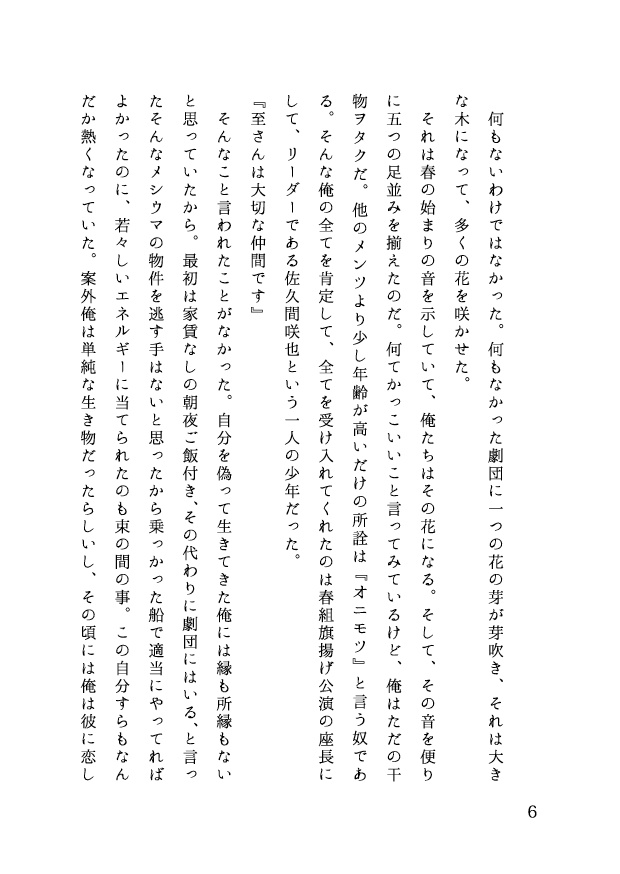 何もないわけではなかった。何もなかった劇団に一つの花の芽が芽吹き、それは大き
な木になって、多くの花を咲かせた。
それは春の始まりの音を示していて、俺たちはその花になる。そして、その音を便り
に五つの足並みを揃えたのだ。何てかっこいいこと言ってみているけど、俺はただの干
物ヲタクだ。他のメンツより少し年齢が高いだけの所詮は『オニモツ』と言う奴であ
る。そんな俺の全てを肯定して、全てを受け入れてくれたのは春組旗揚げ公演の座長に
して、リーダーである佐久間咲也という一人の少年だった。
『至さんは大切な仲間です』
そんなこと言われたことがなかった。自分を偽って生きてきた俺には縁も所縁もない
と思っていたから。最初は家賃なしの朝夜ご飯付き、その代わりに劇団にはいる、と言っ
たそんなメシウマの物件を逃す手はないと思ったから乗っかった船で適当にやってれば
よかったのに、若々しいエネルギーに当てられたのも束の間の事。この自分すらもなん
だか熱くなっていた。案外俺は単純な生き物だったらしいし、その頃には俺は彼に恋し
6